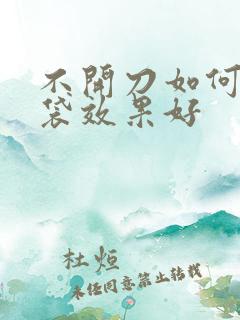 不開刀如何
袋效果好
杜烜
未经同意禁止转载